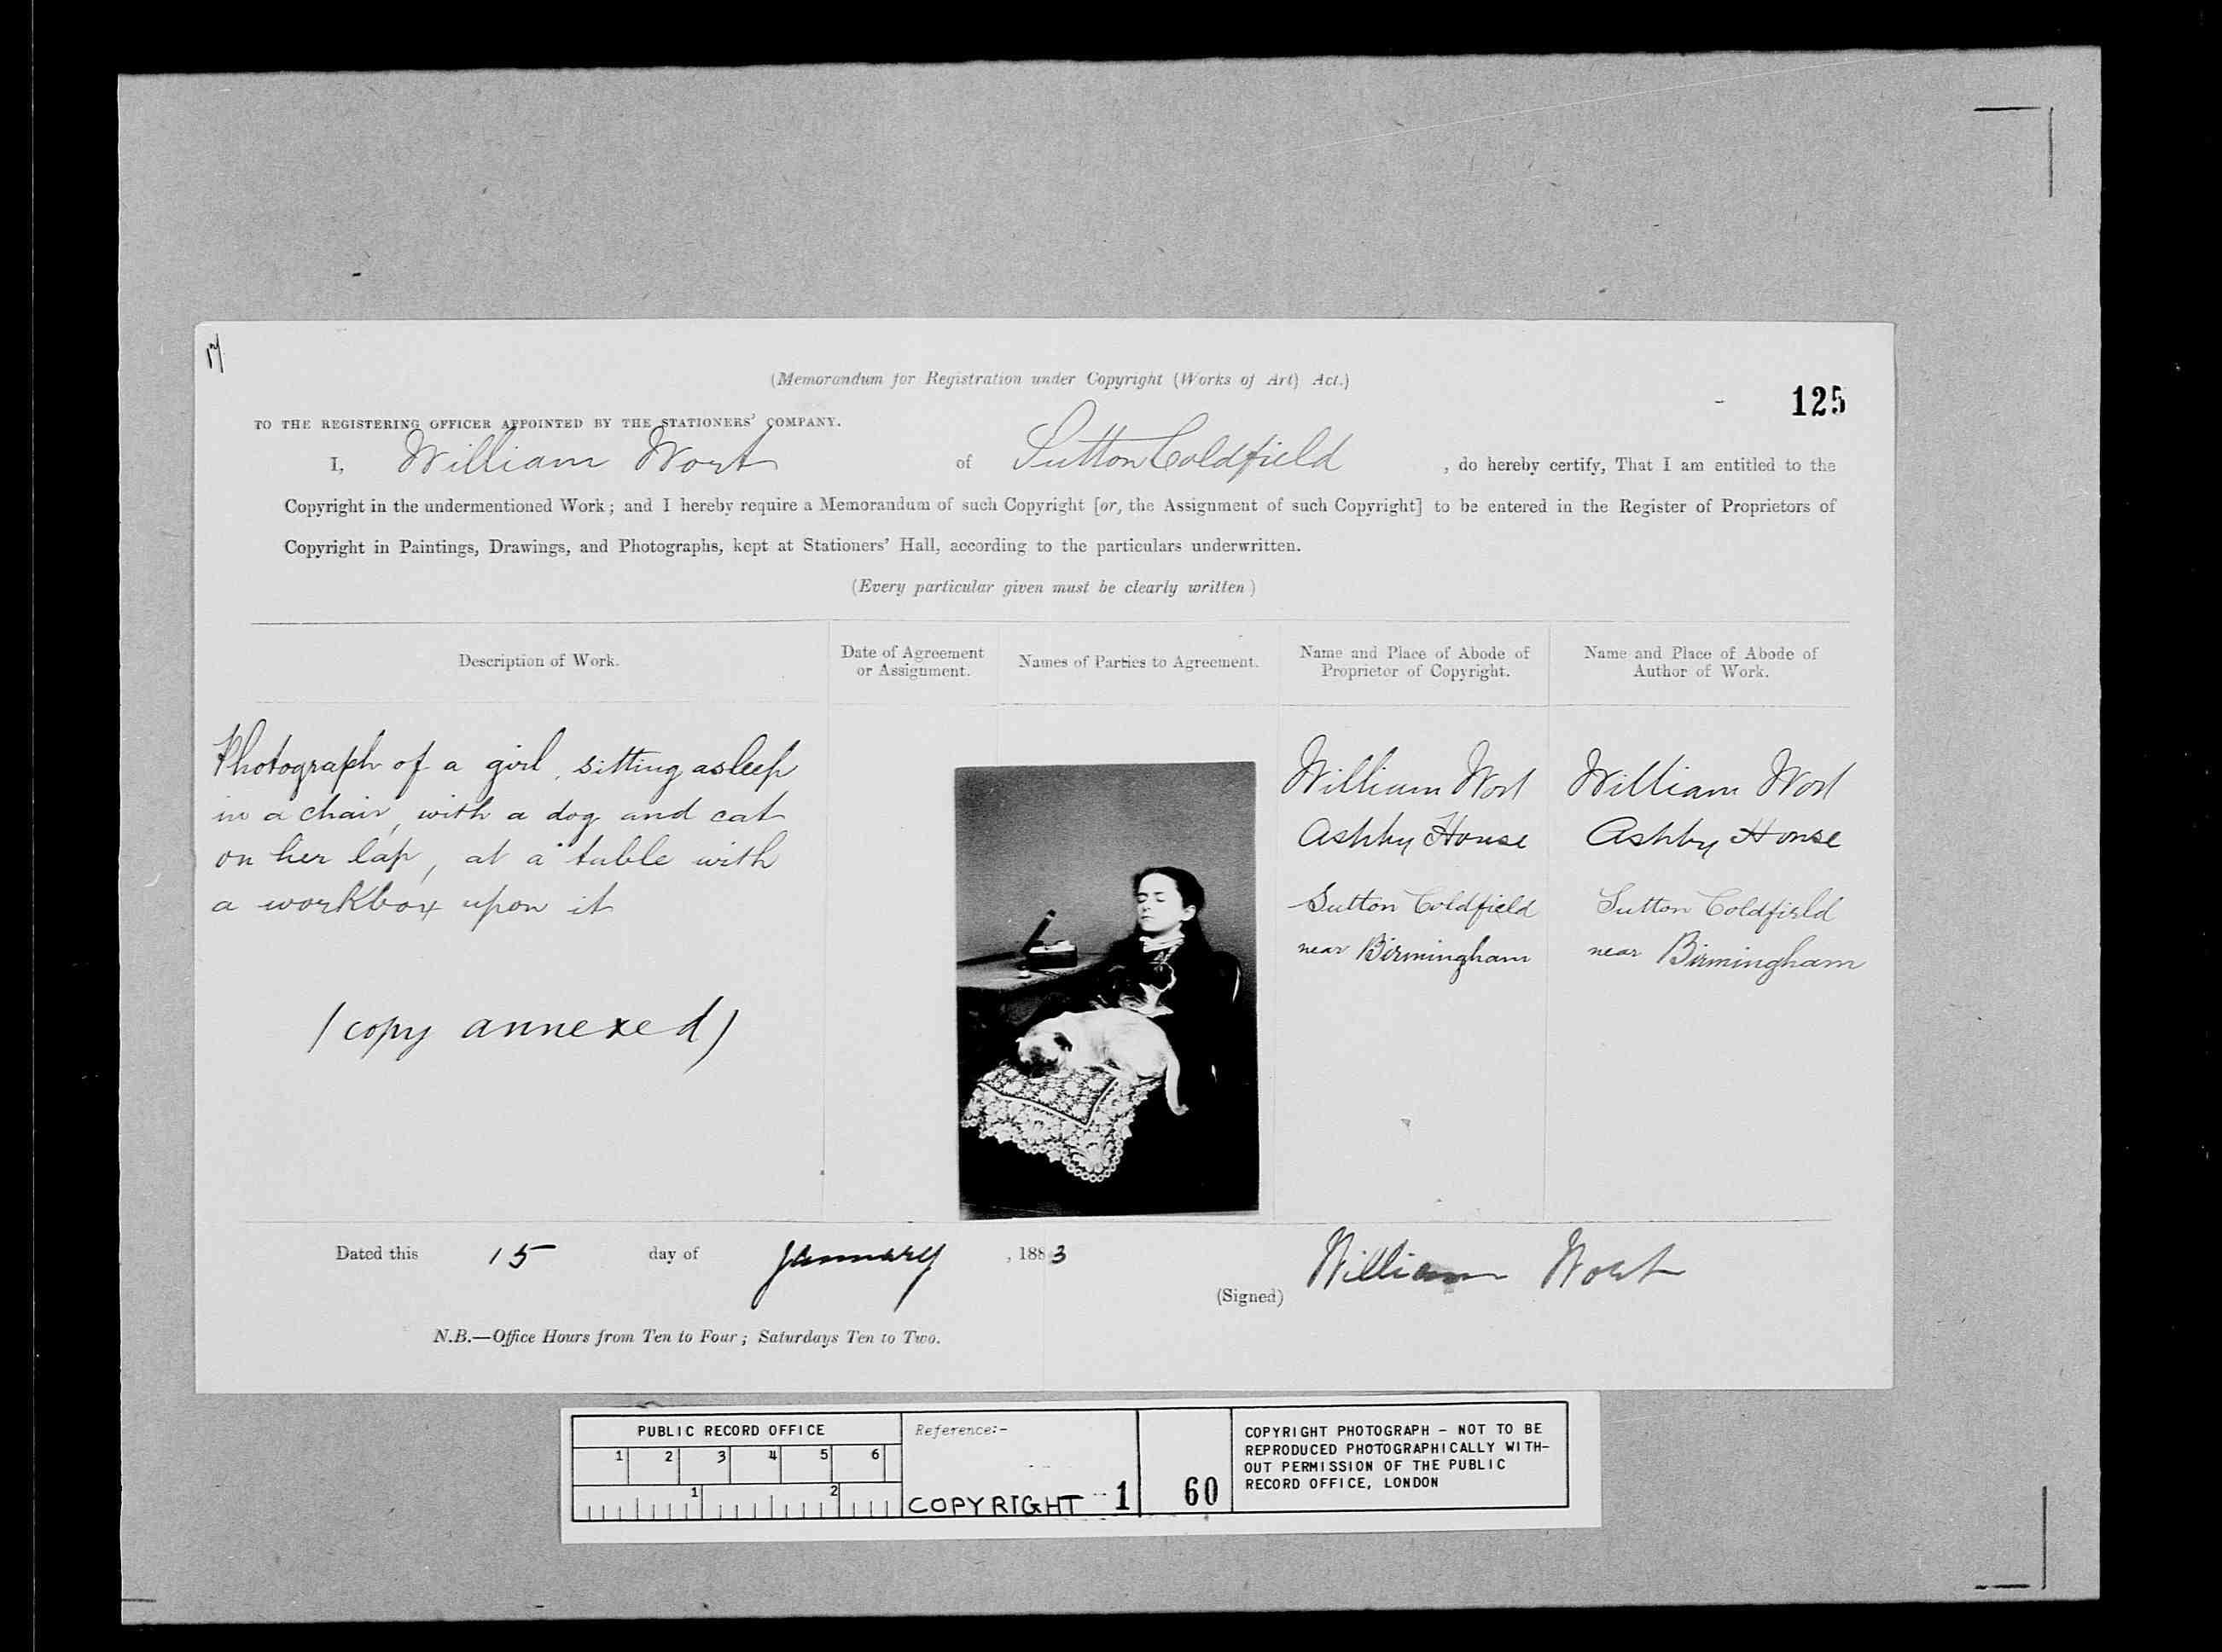 17
(Memorandum for Registration under Copyright (Works of Art) Act.)
125
TO THE REGISTERING OFFICER APPOINTED BY THE STATIONERS' COMPANY.
I, William Wort of Sutton Coldfield , do hereby certify, That I am entitled to the
Copyright in the undermentioned Work; and I hereby require a Memorandum of such Copyright [or, the Assignment of such Copyright] to be entered in the Register of Proprietors of
Copyright in Paintings, Drawings, and Photographs, kept at Stationers' Hall, according to the particulars underwritten.
(Every particular given must be clearly written)
Description of Work.
Date of Agreement
or Assignment.
Names of Parties to Agreement.
Name and Place of Abode of
Proprietor of Copyright.
Name and Place of Abode of
Author of Work.
Photograph of a girl, sitting asleep
in a chair, with a dog and cat
on her lap, at a table with
a workbox upon it
(copy annexed)
William Wort
Ashby House
Sutton Coldfield
near Birmingham
William Wort
Ashby House
Sutton Coldfield
near Birmingham
Dated this 15 day of January , 1883
(Signed) William Wort
N.B.—Office Hours from Ten to Four; Saturdays Ten to Two.
PUBLIC RECORD OFFICE
1 2 3 4 5 6
1 2
Reference:-
COPYRIGHT 1 60
COPYRIGHT PHOTOGRAPH - NOT TO BE
REPRODUCED PHOTOGRAPHICALLY WITH-
OUT PERMISSION OF THE PUBLIC
RECORD OFFICE, LONDON